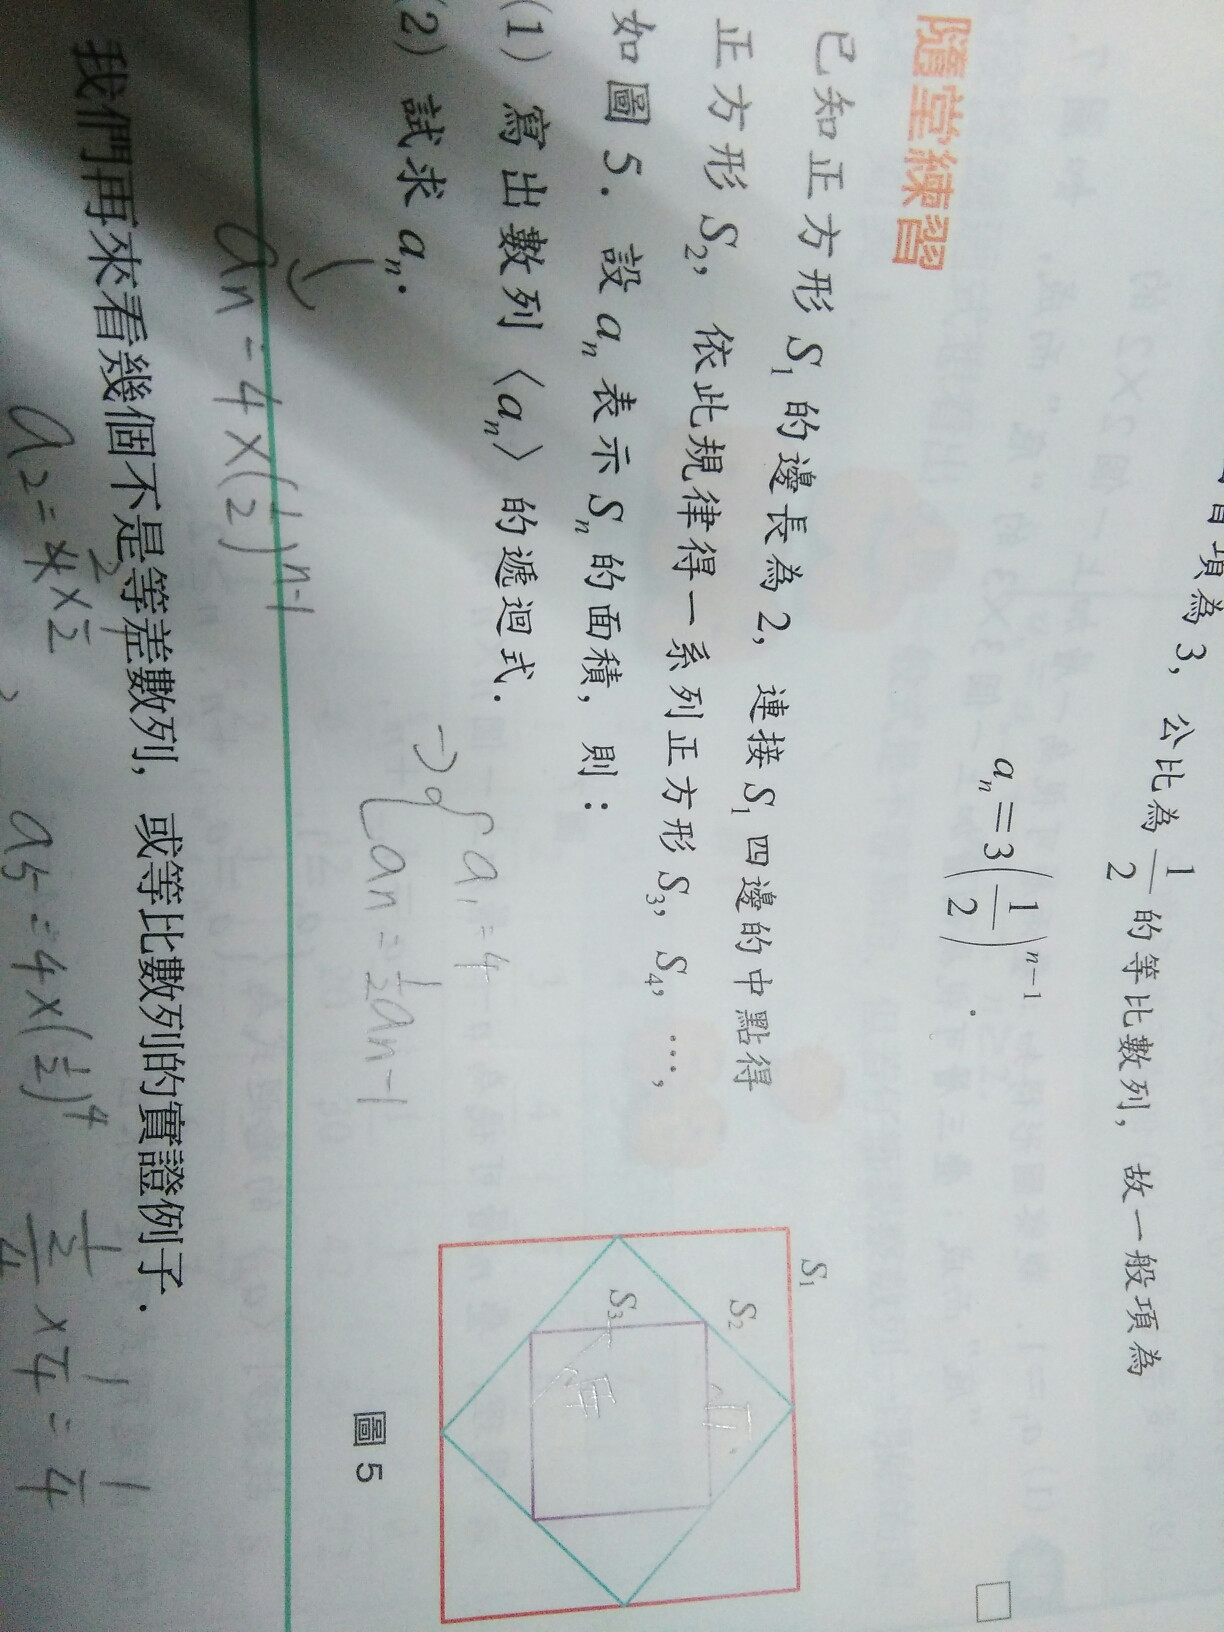 項為 3, 公比為 1/2 的等比數列, 故一般項為
aₙ=3(1/2)ⁿ⁻¹.
隨堂練習
已知正方形 S₁ 的邊長為 2, 連接 S₁ 四邊的中點得
正方形 S₂, 依此規律得一系列正方形 S₃, S₄, …,
如圖 5. 設 aₙ 表示 Sₙ 的面積, 則:
(1) 寫出數列〈aₙ〉的遞迴式.
→ { a₁=4
aₙ=1/2 aₙ₋₁
(2) 試求 aₙ.
aₙ=4×(1/2)ⁿ⁻¹
S₁
S₂
S₃
圖 5
我們再來看幾個不是等差數列, 或等比數列的實證例子.
a₂=4×1/2
a₅=4×(1/2)⁴
×4=1/4